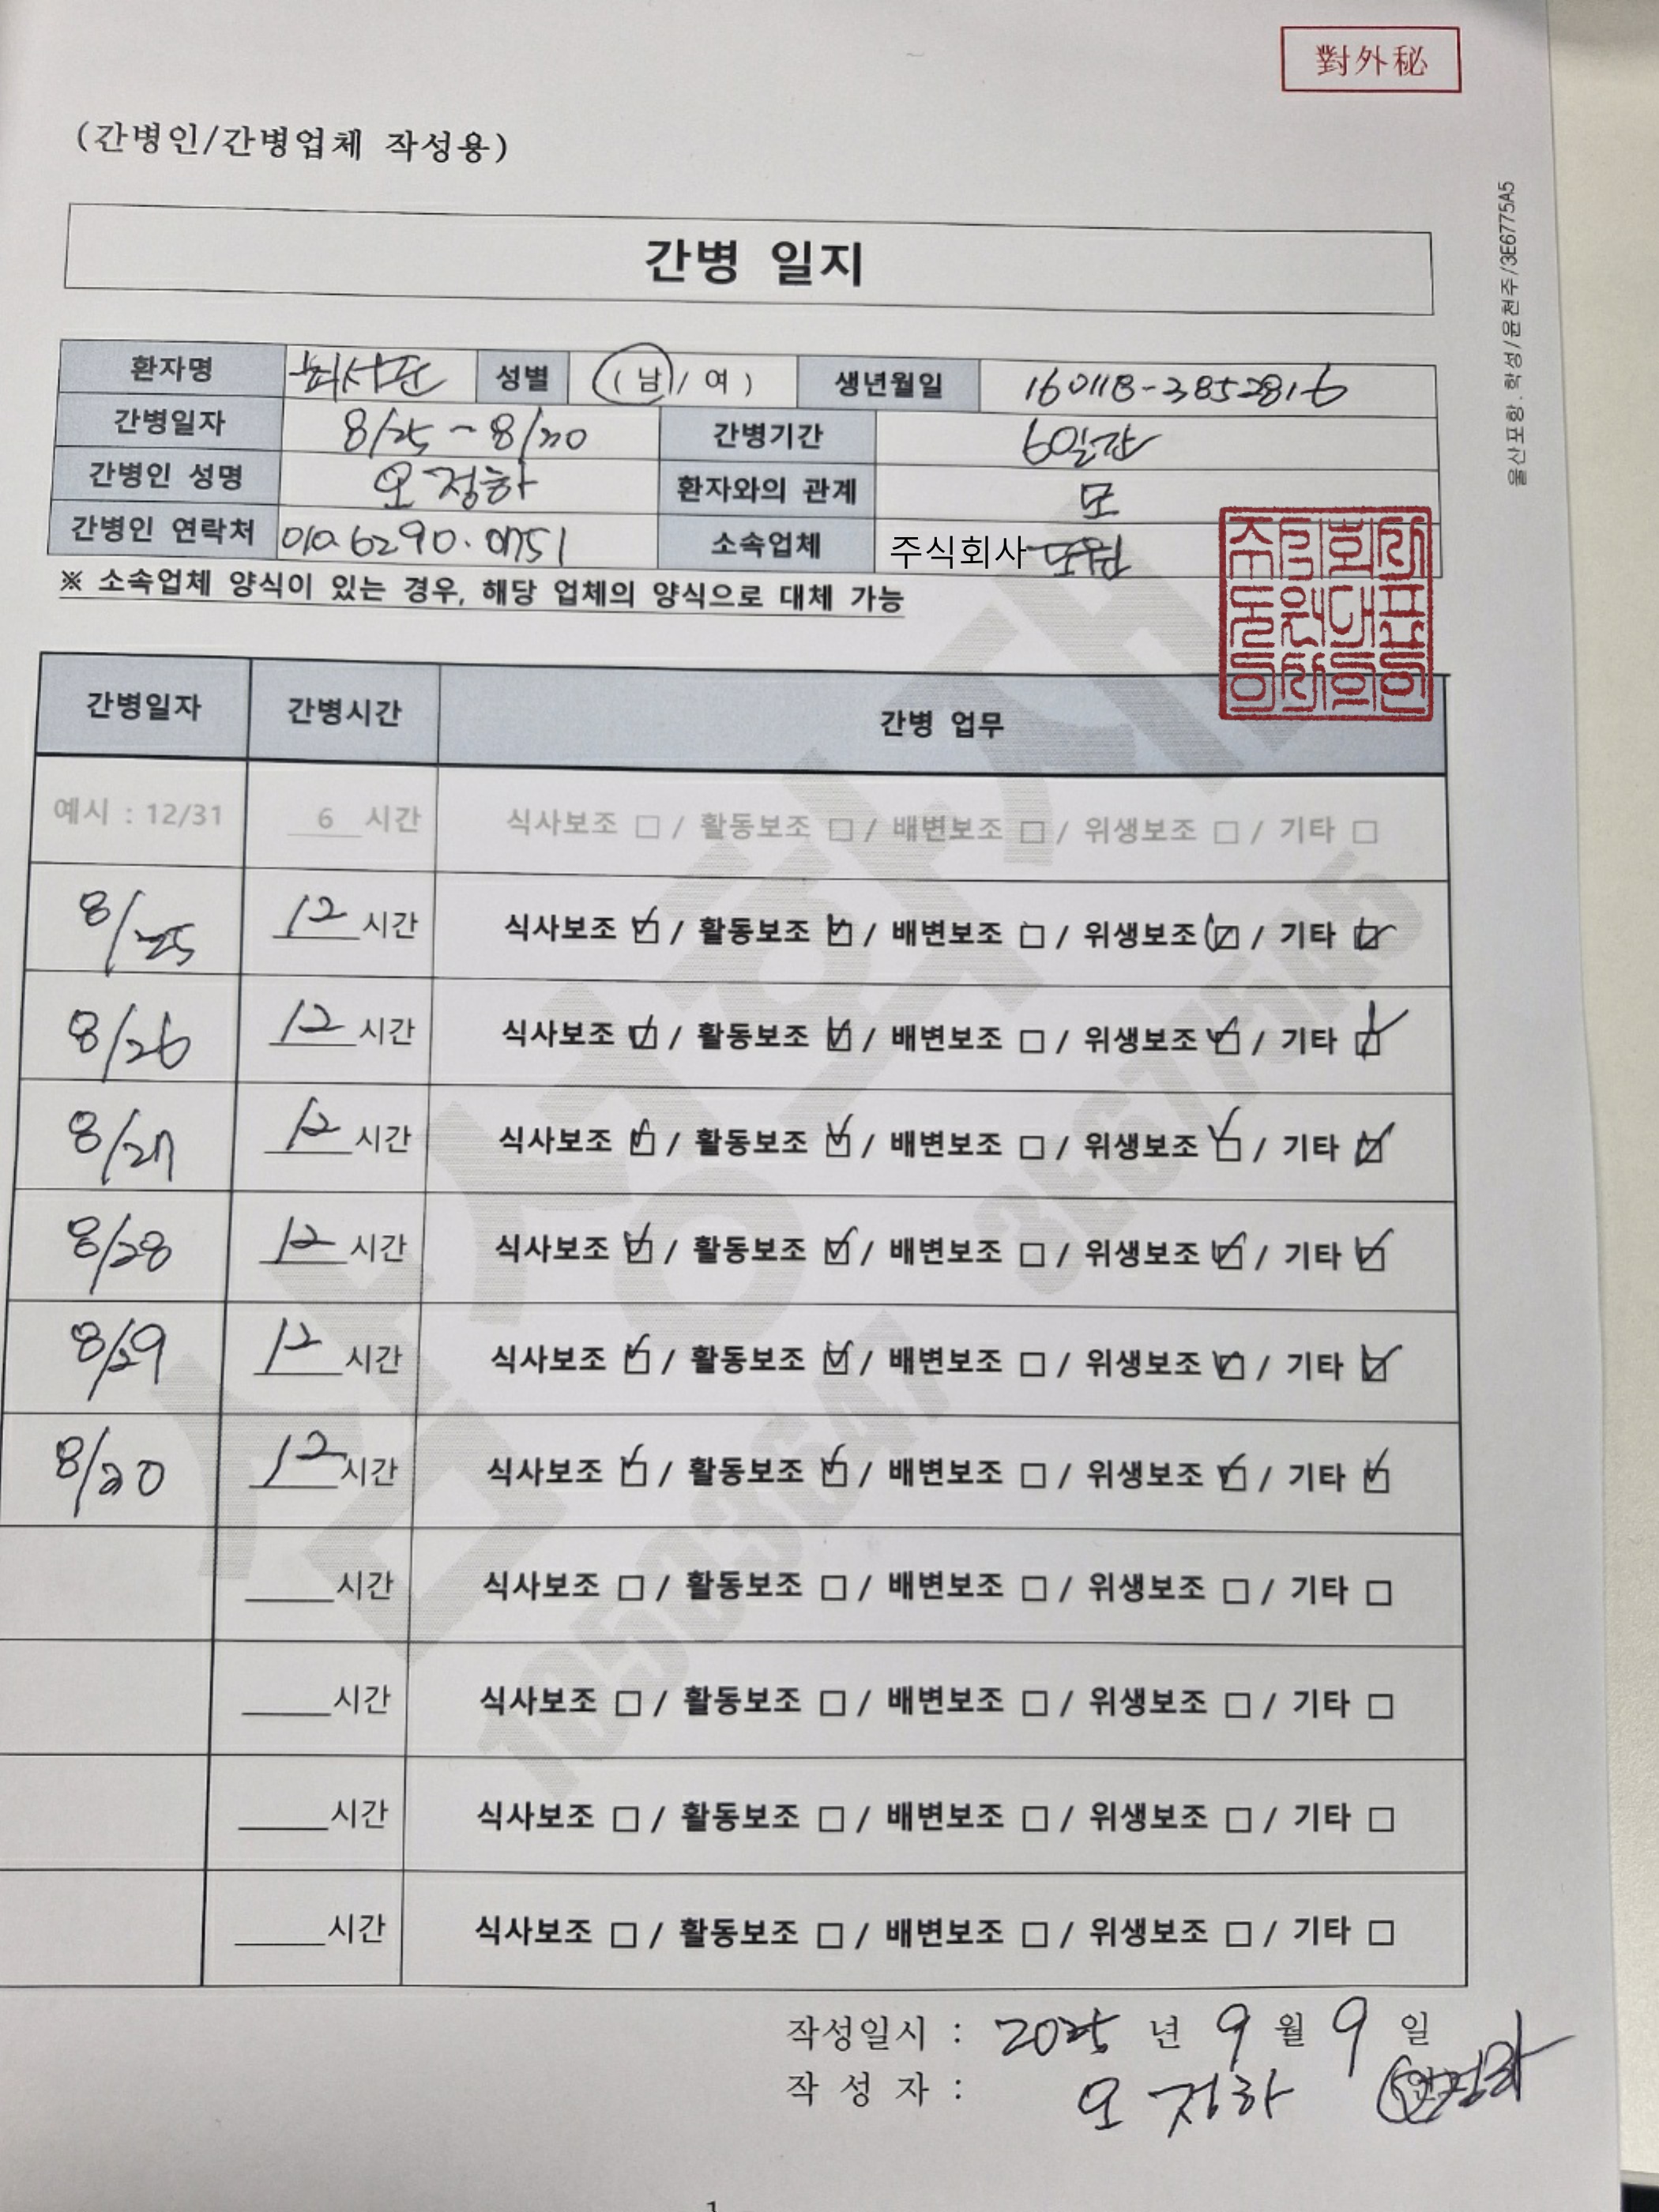 對外秘
(간병인/간병업체 작성용)
울산포항.학성/윤천주/3E6775A5
간병 일지
환자명 최서준 성별 (남/여) 생년월일 160118-3852816
간병일자 8/25 ~ 8/30 간병기간 60일간
간병인 성명 오정하 환자와의 관계 모
간병인 연락처 010.6290.0751 소속업체 주식회사
※ 소속업체 양식이 있는 경우, 해당 업체의 양식으로 대체 가능
간병일자 간병시간 간병 업무
예시 : 12/31 6 시간 식사보조 □ / 활동보조 □ / 배변보조 □ / 위생보조 □ / 기타 □
8/25 12 시간 식사보조 ☑ / 활동보조 ☑ / 배변보조 □ / 위생보조 ☑ / 기타 ☑
8/26 12 시간 식사보조 ☑ / 활동보조 ☑ / 배변보조 □ / 위생보조 ☑ / 기타 ☑
8/27 12 시간 식사보조 ☑ / 활동보조 ☑ / 배변보조 □ / 위생보조 ☑ / 기타 ☑
8/28 12 시간 식사보조 ☑ / 활동보조 ☑ / 배변보조 □ / 위생보조 ☑ / 기타 ☑
8/29 12 시간 식사보조 ☑ / 활동보조 ☑ / 배변보조 □ / 위생보조 ☑ / 기타 ☑
8/30 12 시간 식사보조 ☑ / 활동보조 ☑ / 배변보조 □ / 위생보조 ☑ / 기타 ☑
시간 식사보조 □ / 활동보조 □ / 배변보조 □ / 위생보조 □ / 기타 □
시간 식사보조 □ / 활동보조 □ / 배변보조 □ / 위생보조 □ / 기타 □
시간 식사보조 □ / 활동보조 □ / 배변보조 □ / 위생보조 □ / 기타 □
시간 식사보조 □ / 활동보조 □ / 배변보조 □ / 위생보조 □ / 기타 □
삼성화재
10503647 3E6775A5
작성일시 : 2025 년 9 월 9 일
작 성 자 : 오정하 오정하
1